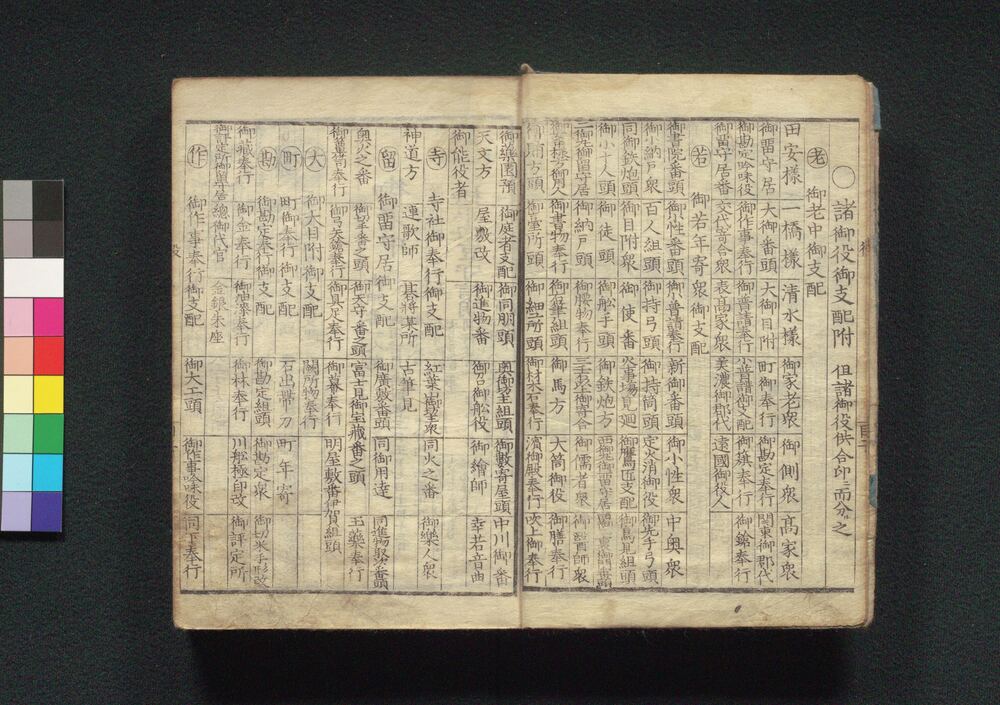 〇諸御役御支配附 但諸御役供合印ニ而分ル之
㊀老 御老中御支配
田安様 一橋様 清水様 御家老衆 御側衆 高家衆
御留守居 大御番頭 大御目附 町御奉行 御勘定奉行 関東御郡代
御勘定吟味役 御作事奉行 御普請奉行 小普請御支配 御旗奉行 御鎗奉行
御留守居番 交代寄合衆 表高家衆 美濃御郡代 遠國御役人
若 御若年寄衆御支配
御書院番頭 御小性番頭 御小普請奉行 新御番頭 御小性衆 中奥衆
御小納戸衆 百人組頭 御持弓頭 御持筒頭 定火消御役 御先手弓頭
同御鉄炮頭 御目附衆 御使番 火事場見廻 御鷹匠支配 御鳥見組頭
御小十人頭 御徒頭 御舩手頭 御鉄炮方 西丸御留守居
二丸御留守居 御納戸頭 御腰物奉行 三千石以上御寄合 御儒者衆 御醫師衆
御書物奉行 御右筆組頭 御馬方 大筒御役 御膳奉行
御賄方頭 御臺所頭 御細工所頭 御材木石奉行 濱御殿奉行 吹上御奉行
御藥園預 御庭者支配 御同朋頭 奥御坊主組頭 御數寄屋頭 中川御番
天文方 屋敷改 御進物番 御召御舩役 御繪師 幸若音曲
御能役者
寺 寺社御奉行御支配
神道方 連歌師 碁将棊所 古筆見 同火之番 御樂人衆
紅葉山御坊主衆
留 御留守居御支配 御廣敷番頭 同御用達 同進物取次番頭
奥火之番 御天守番之頭 富士見御宝蔵番之頭
御具足奉行 御幕奉行 明屋敷番伊賀組頭 玉藥奉行
大 御大目附御支配 闕所物奉行
町 町御奉行御支配 石出帯刀 町年寄
勘 御勘定奉行御支配 御勘定組頭 御勘定衆 御切米手形改
御蔵奉行 御金奉行 御林奉行 川舩極印改 御評定所
御代官 金銀朱座
作 御作事奉行御支配 御大工頭 御作事吟味役 同下奉行